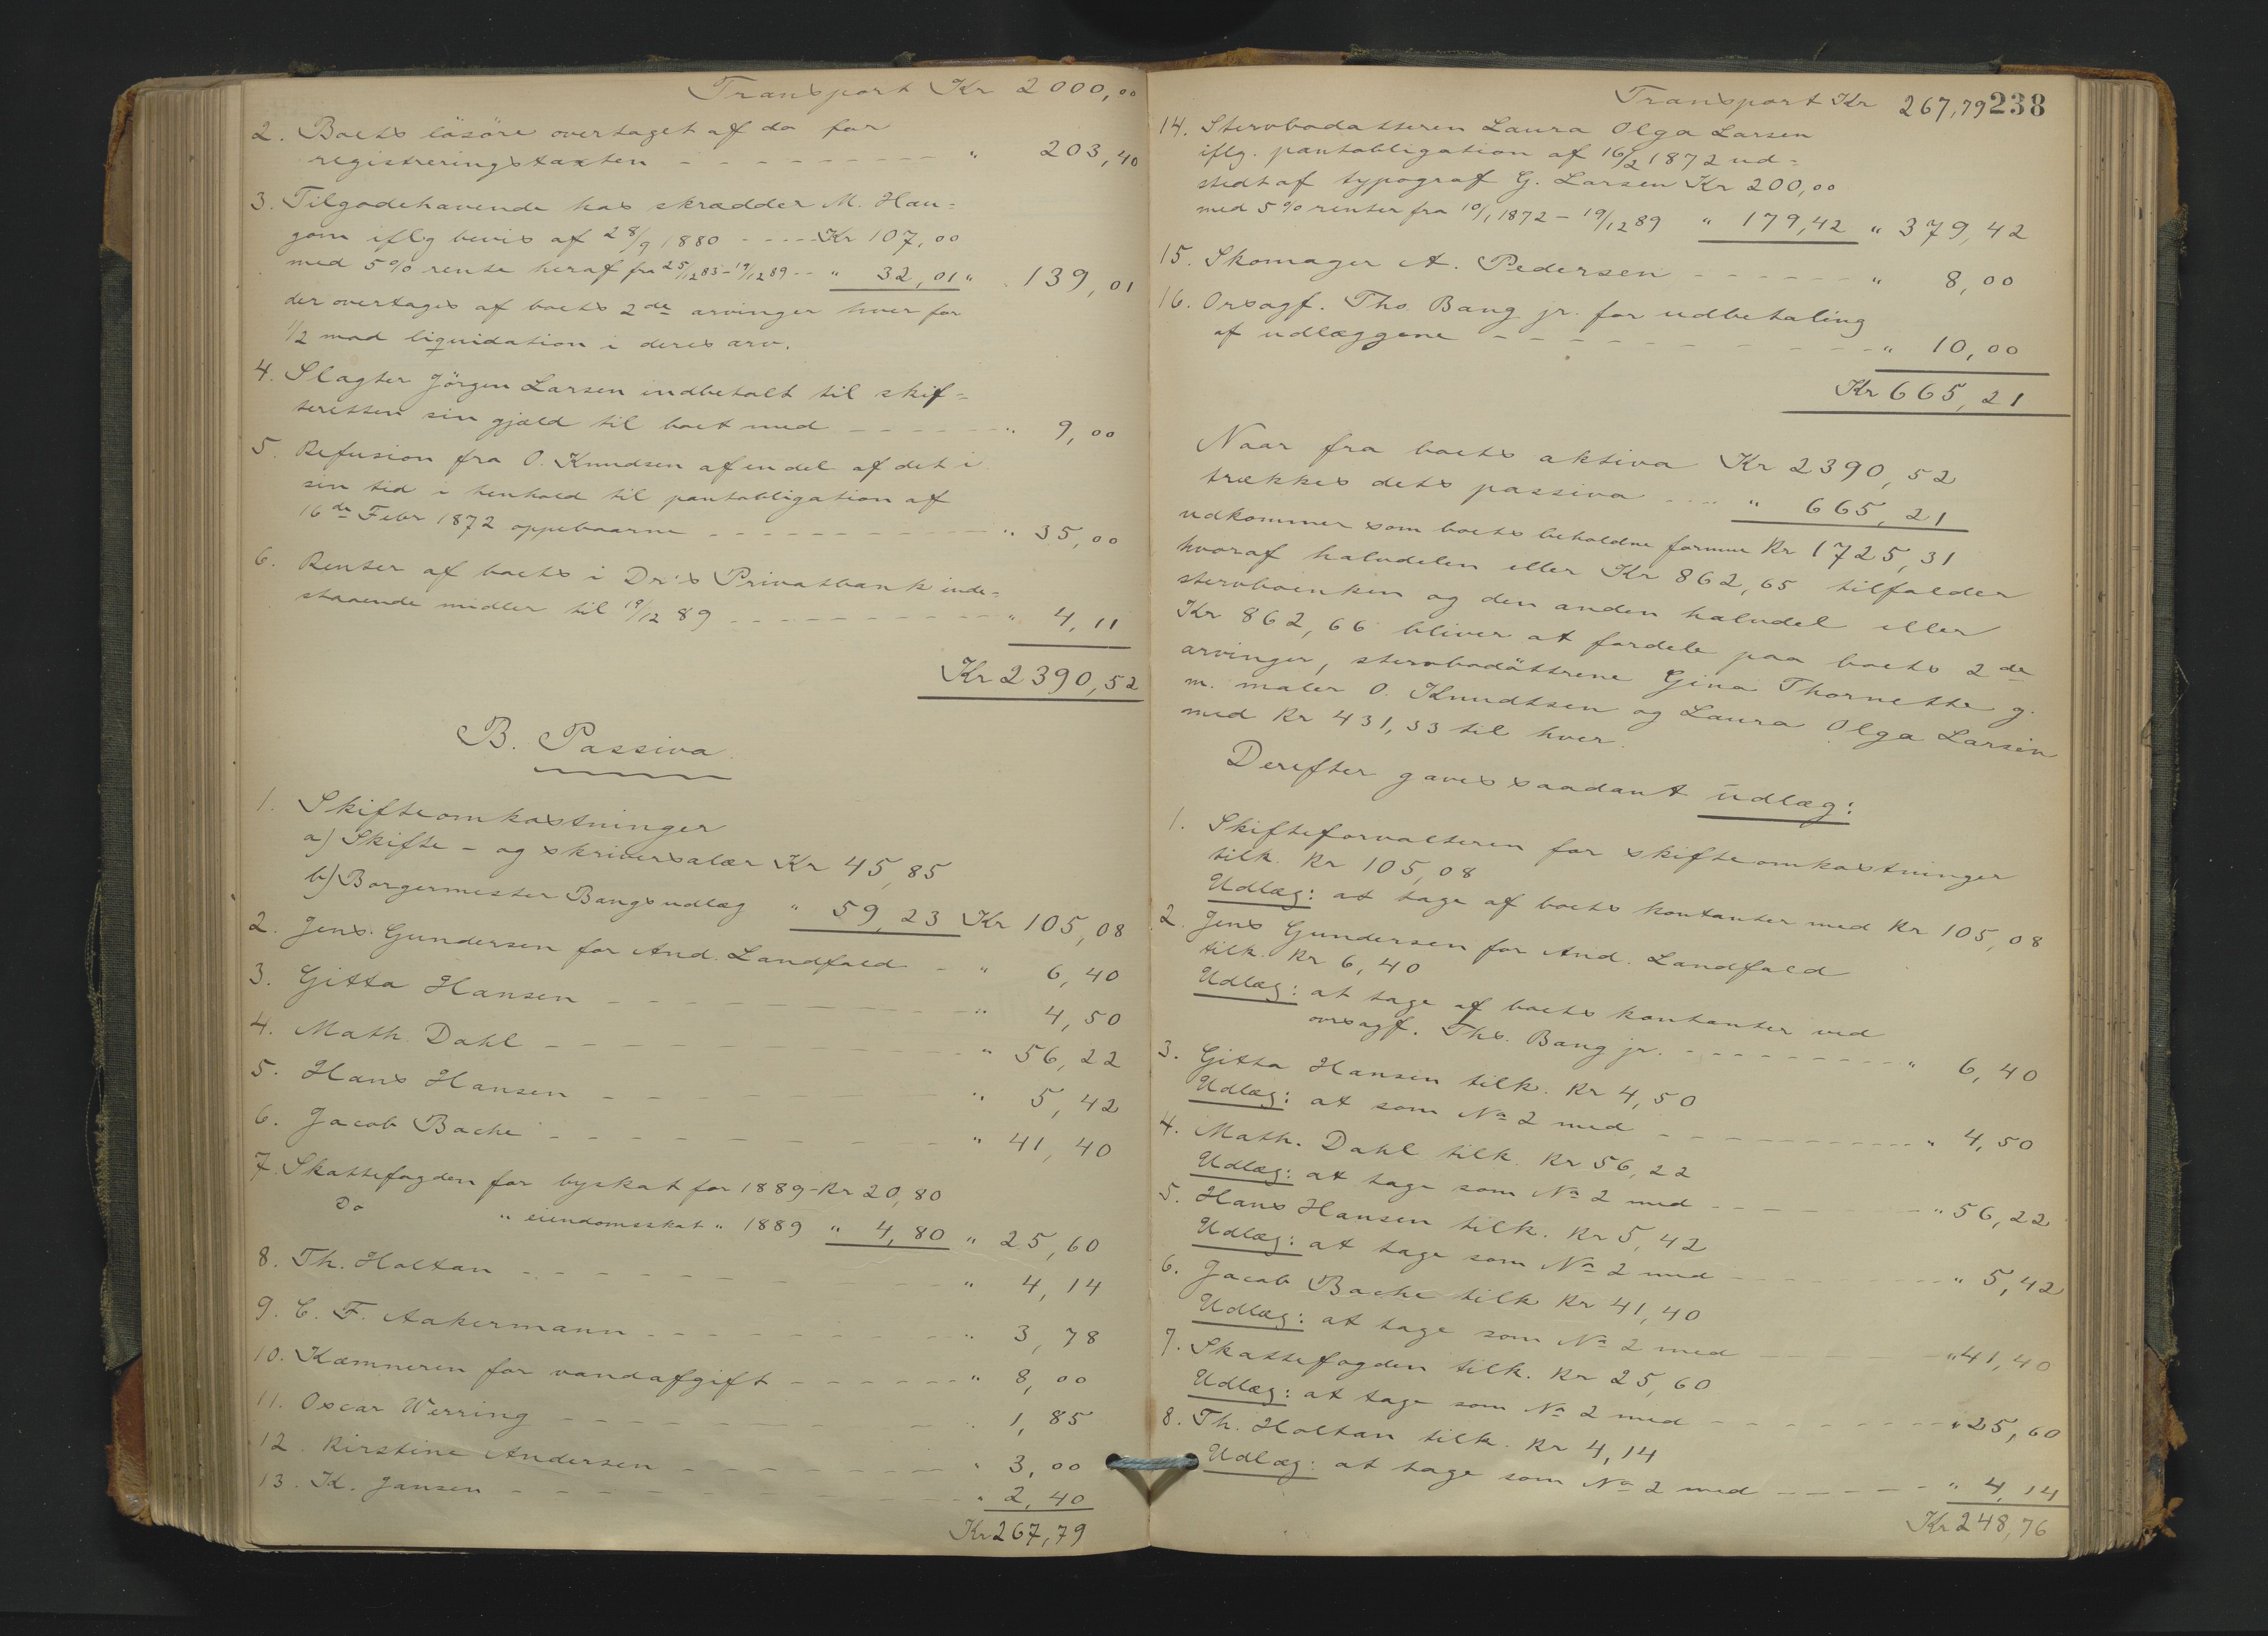 Transport Kr 2000,00
2. Boets løsøre overtaget af do for
registreringstaxten - - - - - - - - - " 203,40
3. Tilgodehavende hos skrædder M. Hau=
gom iflg bevis af 28/9 1880 - - - - Kr 107,00
med 5% rente heraf fra 25/12 83 - 19/12 89 - - " 32,01 " 139,01
der overtages af boets 2de arvinger hver for
1/2 mod liquidation i deres arv.
4. Slagter Jörgen Larsen indbetalt til skif=
teretten sin gjæld til boet med - - - - - - " 9,00
5. Refusion fra O. Knudsen af en del af det i
sin tid i henhold til pantobligation af
16de Febr 1872 oppebaarne - - - - - - - - - - " 35,00
6. Renter af boets i Dr's Privatbank inde=
staaende midler til 19/12 89 - - - - - - - - - - " 4,11
Kr 2390,52
B. Passiva.
1. Skifteomkostninger
a) Skifte - og skriversalær Kr 45,85
b) Borgermester Bangs udlæg " 59,23 Kr 105,08
2. Jens Gundersen for And. Landfald - " 6,40
3. Gitta Hansen - - - - - - - - - - " 4,50
4. Math. Dahl - - - - - - - - - - - " 56,22
5. Hans Hansen - - - - - - - - - - " 5,42
6. Jacob Bache - - - - - - - - - - " 41,40
7. Skattefogden for byskat for 1889 - Kr 20,80
Do " eiendomsskat " 1889 " 4,80 " 25,60
8. Th. Holtan - - - - - - - - - - - " 4,14
9. C. F. Aakermann - - - - - - - - " 3,78
10. Kæmneren for vandafgift - - - - - - " 8,00
11. Oscar Werring - - - - - - - - - " 1,85
12. Kirstine Andersen - - - - - - - " 3,00
13. K. Jansen - - - - - - - - - - - " 2,40
Kr 267,79
Transport Kr 267,79 238
14. Stervbodatteren Laura Olga Larsen
iflg. pantobligation af 16/2 1872 ud=
stedt af typograf G. Larsen Kr 200,00
med 5% renter fra 10/1 1872 - 19/12 89 " 179,42 " 379,42
15. Skomager A. Pedersen - - - - - - - " 8,00
16. Orsagf. Ths Bang jr. for udbetaling
af udlæggene - - - - - - - - - - - " 10,00
Kr 665,21
Naar fra boets aktiva Kr 2390,52
trækkes dets passiva - - - - " 665,21
udkommer som boets beholdne formue Kr 1725,31
hvoraf halvdelen eller Kr 862,65 tilfalder
stervboenken og den anden halvdel eller
Kr 862,66 bliver at fordele paa boets 2de
arvinger, stervbodöttrene Gina Thornette g.
m. maler O. Knudtsen og Laura Olga Larsen
med Kr 431,33 til hver.
Derefter gaves saadant udlæg:
1. Skifteforvalteren for skifteomkostninger
tilk. Kr 105,08
Udlæg: at tage af boets kontanter med Kr 105,08
2. Jens Gundersen for And. Landfald
tilk. Kr 6,40
Udlæg: at tage af boets kontanter ved
ovrsagf. Ths. Bang jr. - - - - - - - - - - " 6,40
3. Gitta Hansen tilk. Kr 4,50
Udlæg: at som No 2 med - - - - - - - - - - " 4,50
4. Math. Dahl tilk. Kr 56,22
Udlæg: at tage som No 2 med - - - - - - - - " 56,22
5. Hans Hansen tilk. Kr 5,42
Udlæg: at tage som No 2 med - - - - - - - - " 5,42
6. Jacob Bache tilk Kr 41,40
Udlæg: at tage som No 2 med - - - - - - - - " 41,40
7. Skattefogden tilk. Kr 25,60
Udlæg: at tage som No 2 med - - - - - - - - " 25,60
8. Th. Holtan tilk. Kr 4,14
Udlæg: at tage som No 2 med - - - - - - " 4,14
Kr 248,76